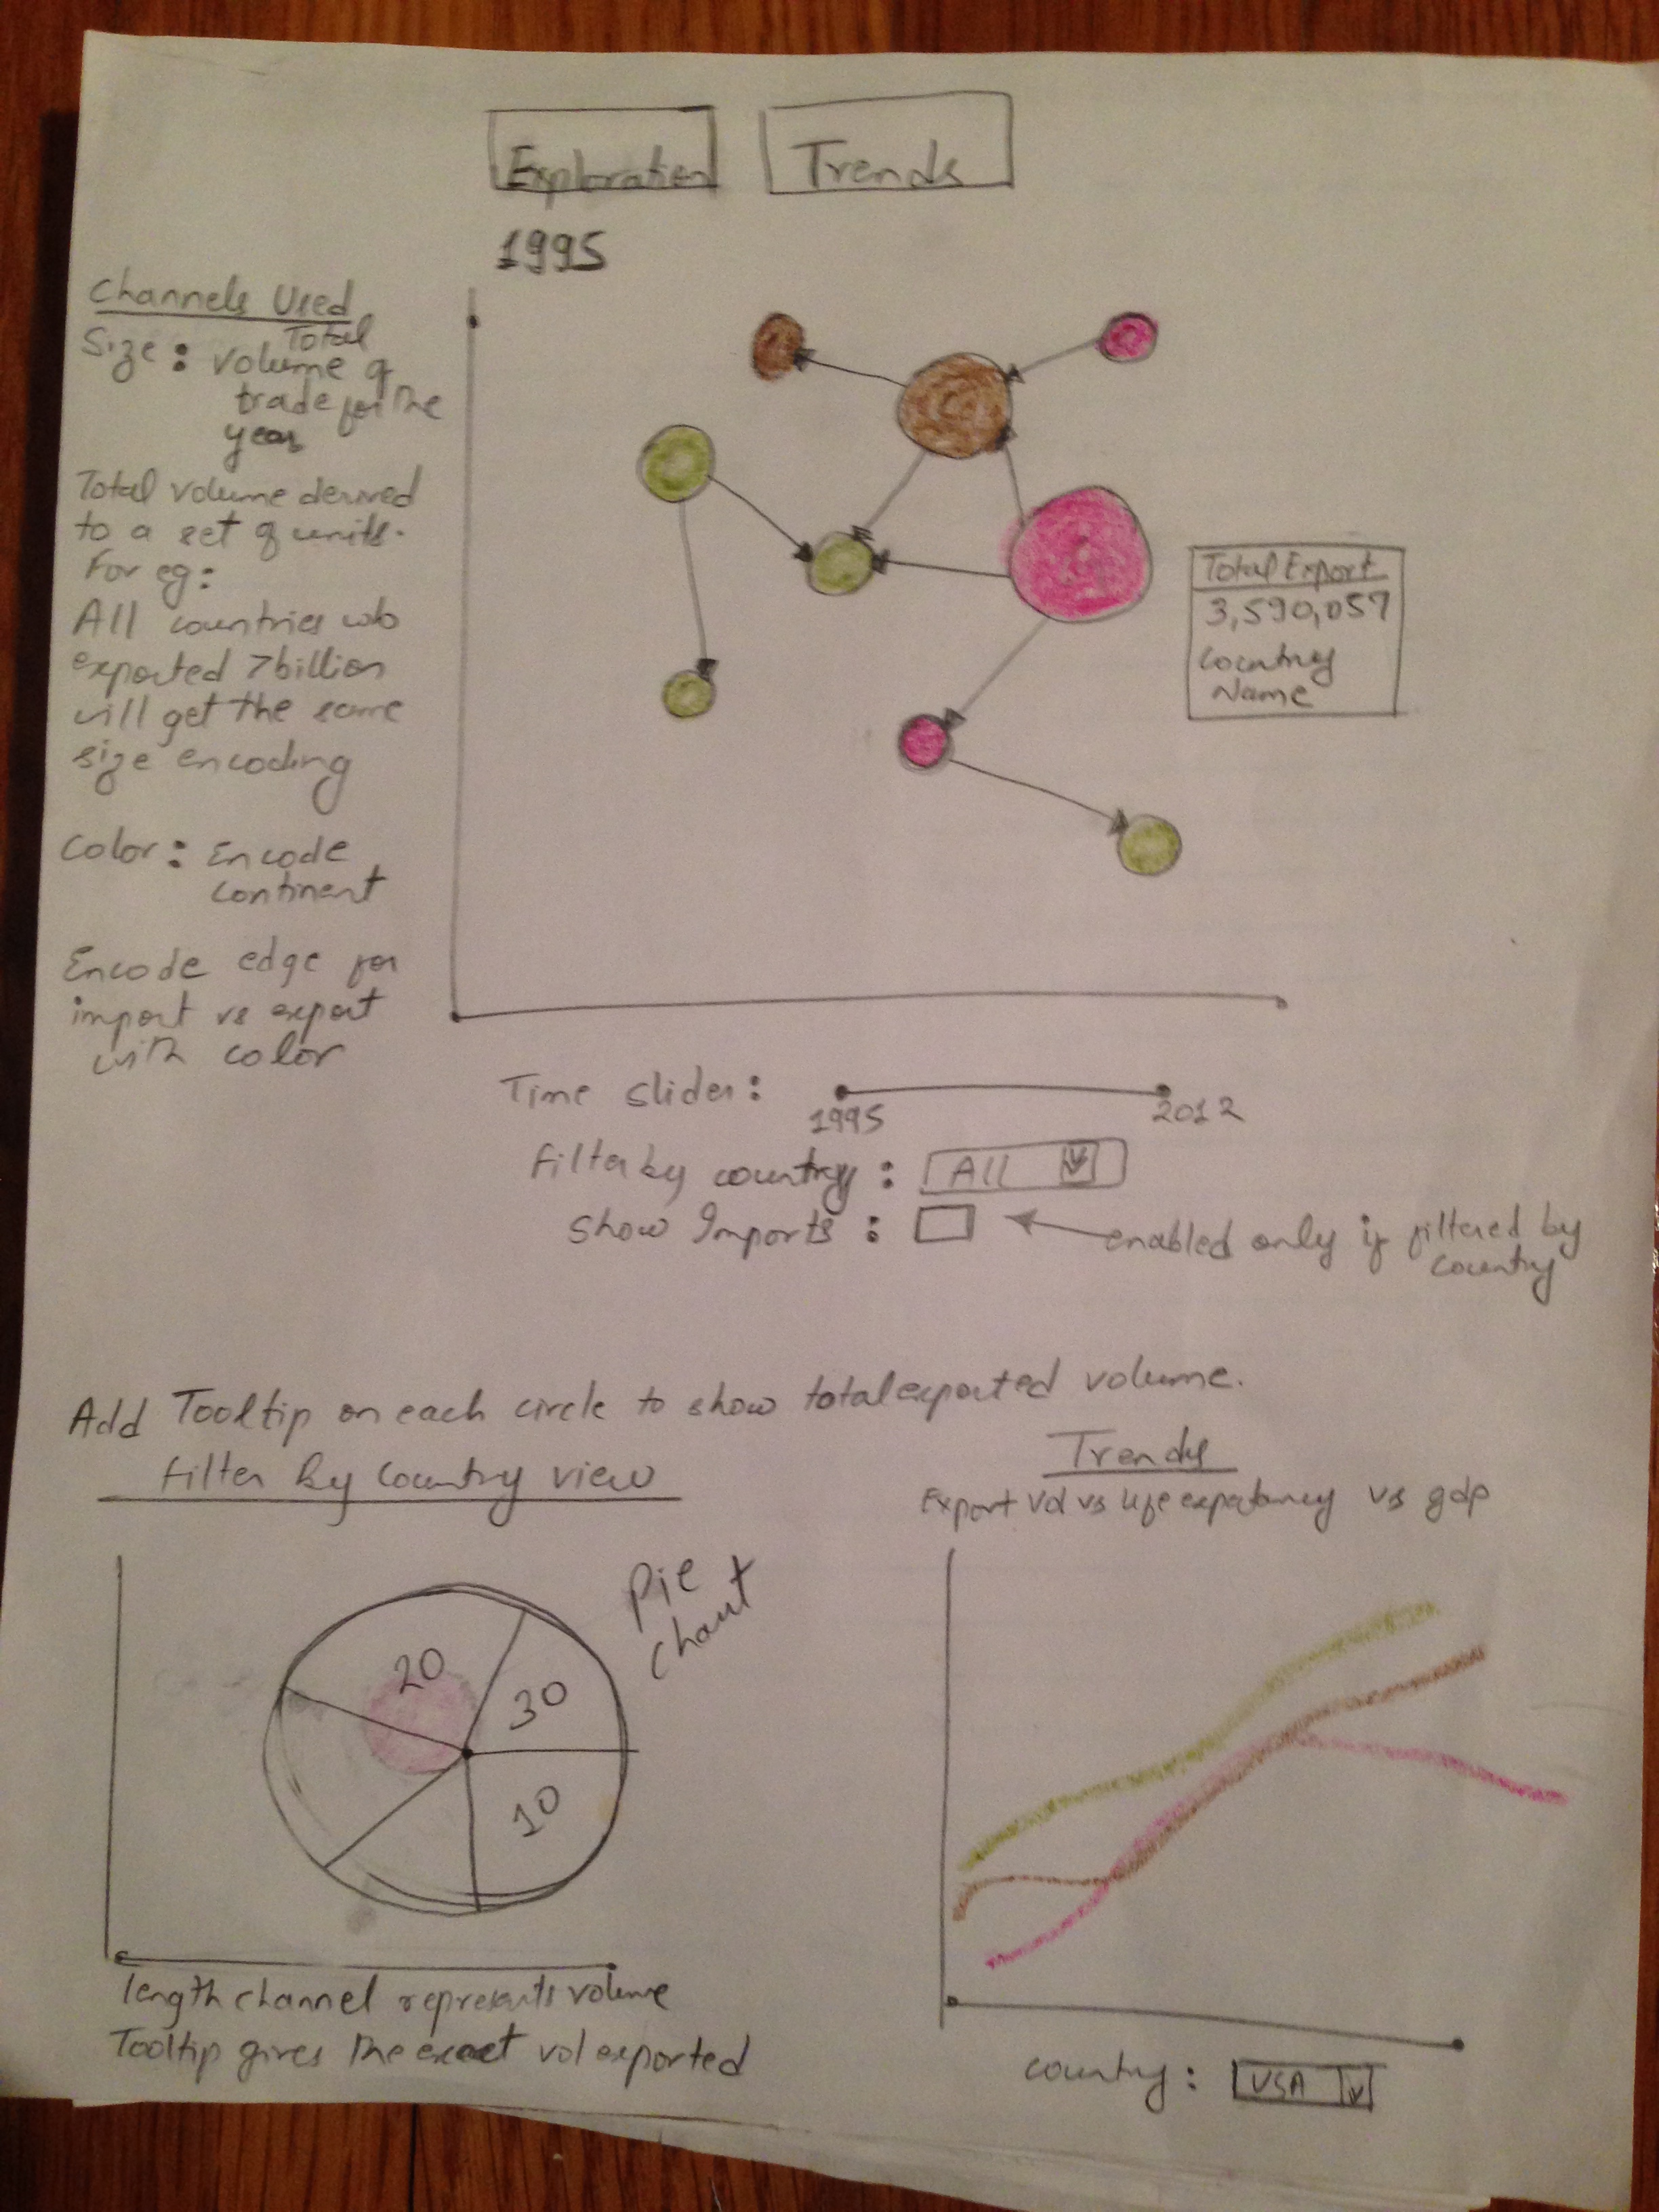 Exploration
Trends
1995
Channels Used
Size: Total
volume of
trade for the
year
Total volume derived
to a set of units.
For eg:
All countries who
exported >billion
will get the same
size encoding
Color: Encode
continent
Encode edge for
import vs export
with color
Total Export
3,590,057
Country
Name
Time slider:
1995
2012
Filter by country: All
Show Imports:
enabled only if filtered by
country
Add Tooltip on each circle to show total exported volume.
Filter by Country view
Pie
chart
20
30
10
length channel represents volume
Tooltip gives the exact vol exported
Trends
Export Vol vs life expectancy vs gdp
country: USA